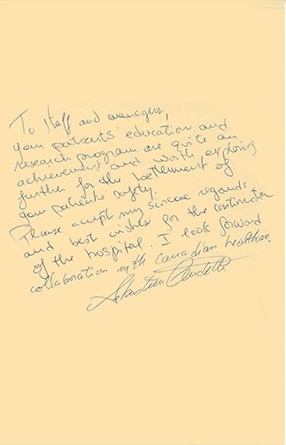 To staff and managers,
your patients' education and
research program are quite an
achievement and worth exploring
further for the betterment of
your patients safety.
Please accept my sincere regards
and best wishes for the continuation
of the hospital. I look forward
collaboration with Canadian healthcare.